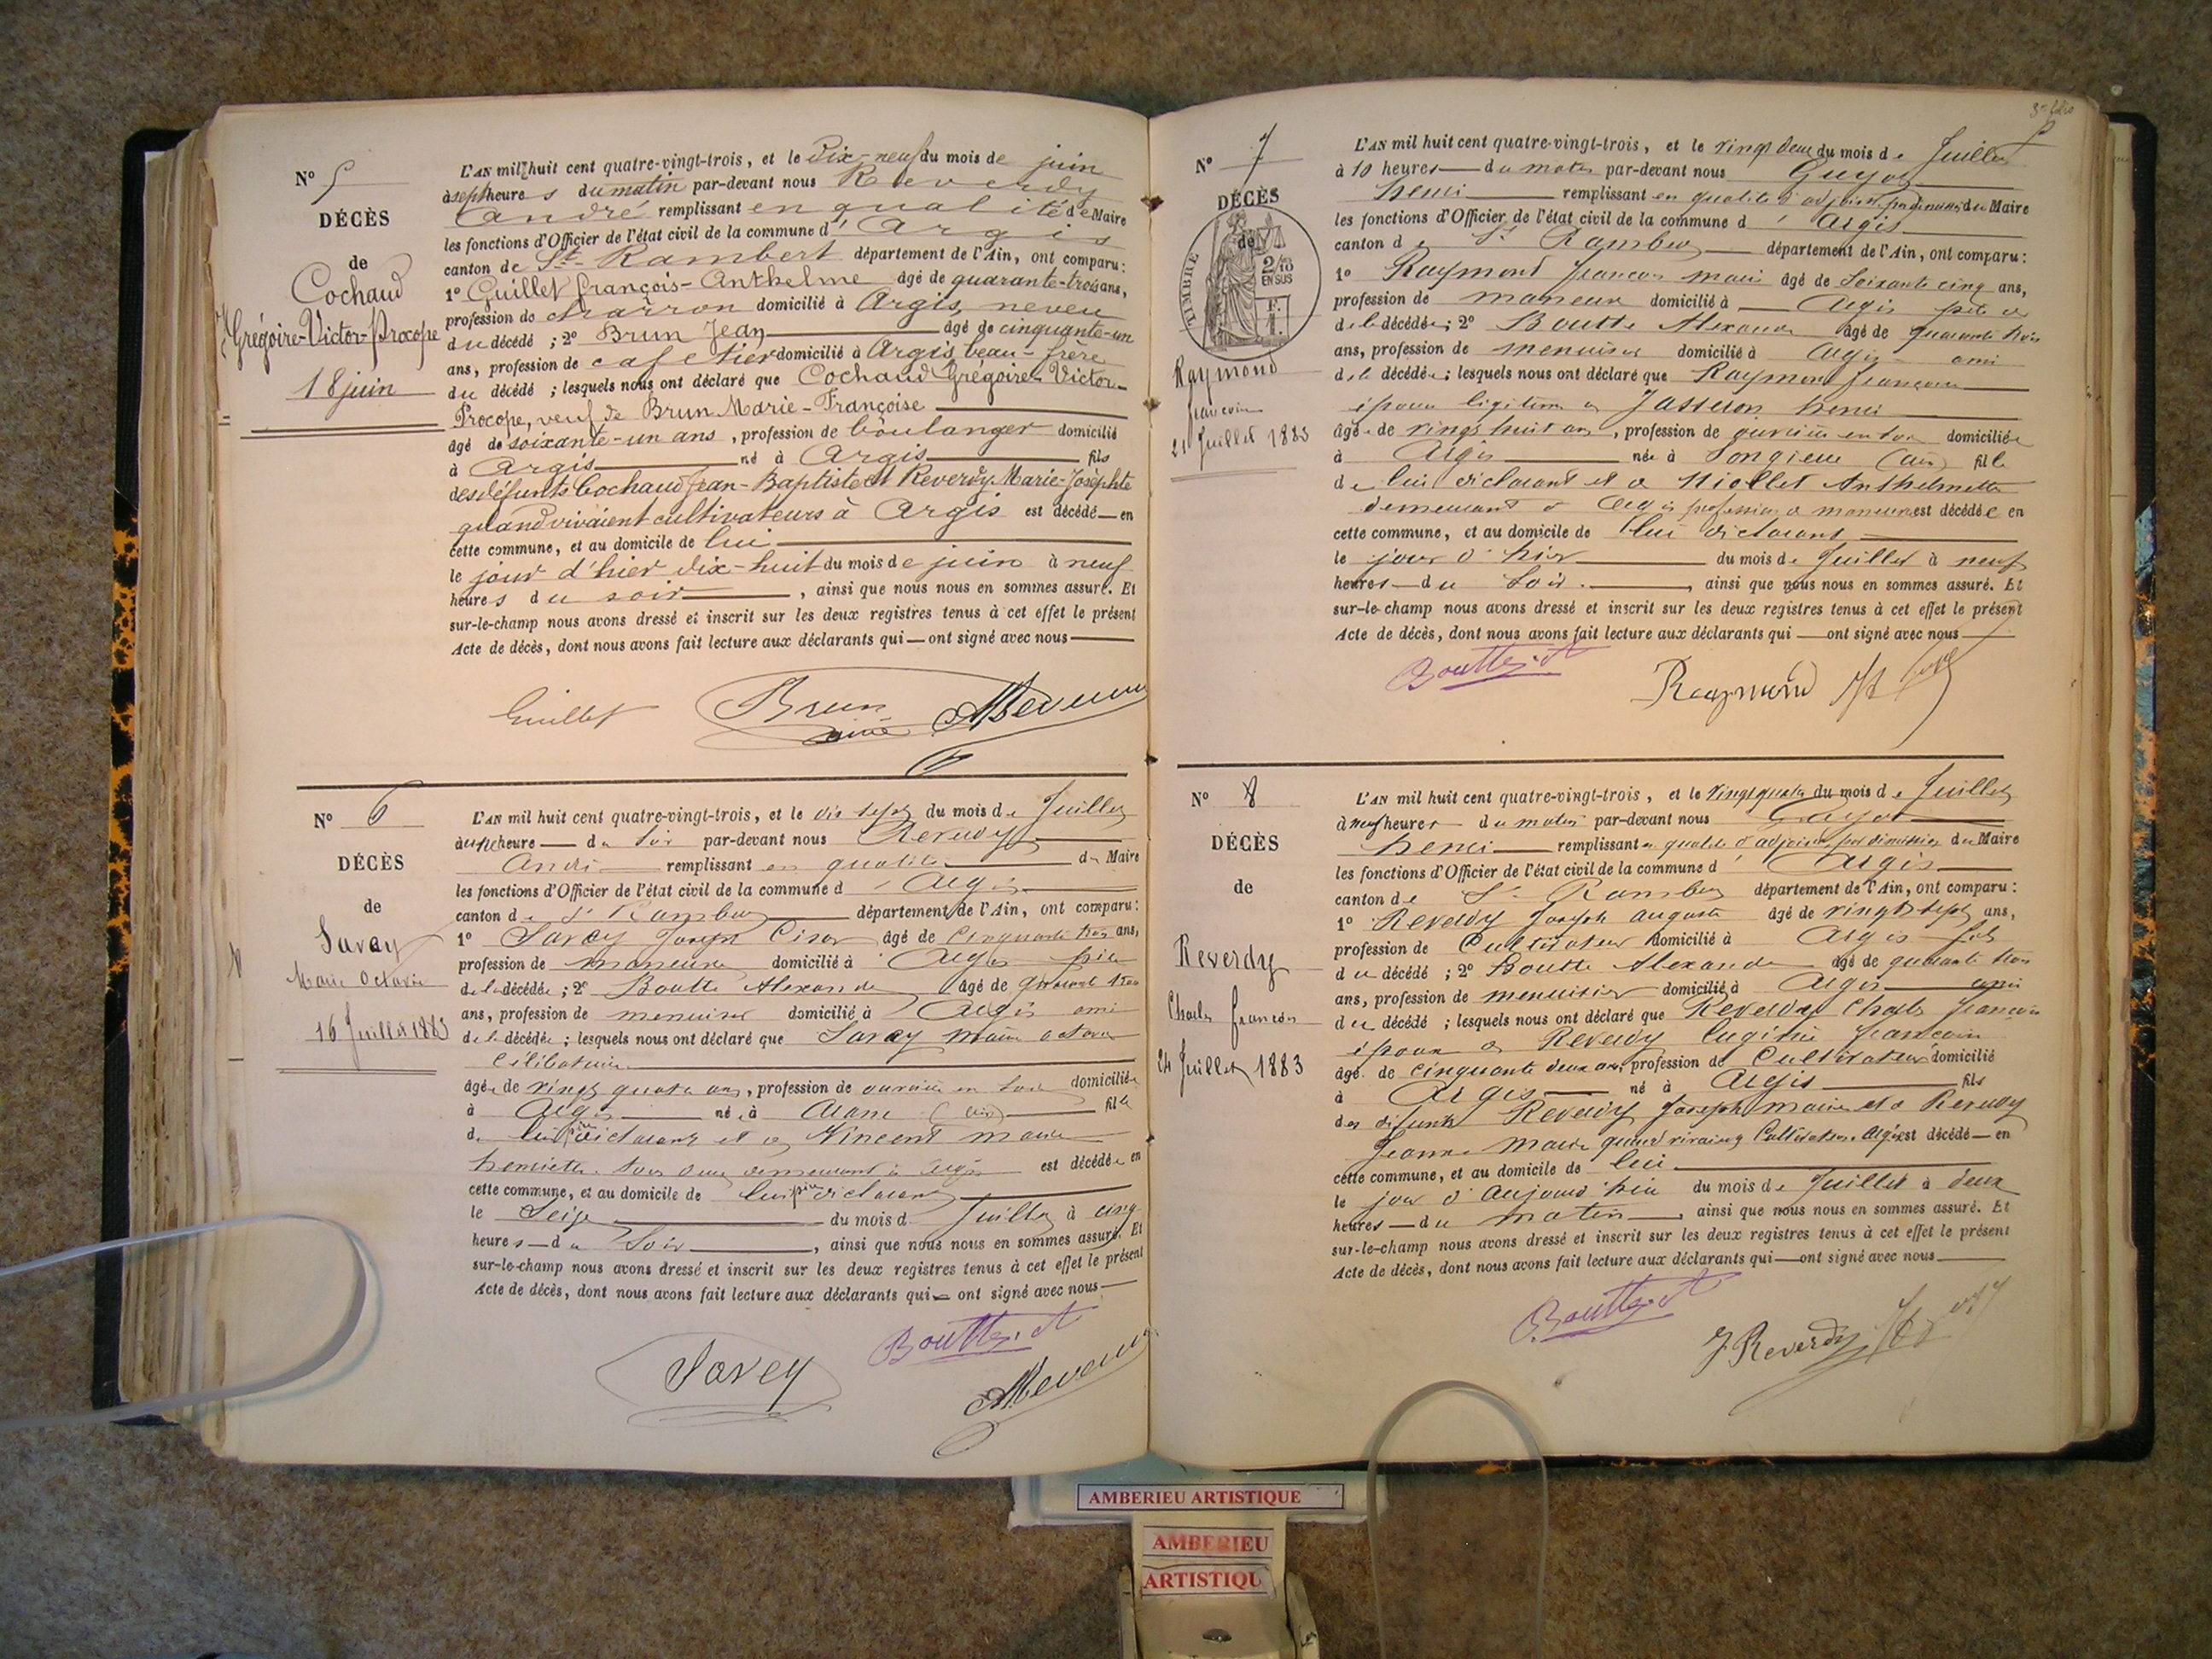 N° 5
DÉCÈS
de
Cochaud
Grégoire-Victor-Procope
18 juin
L'AN mil huit cent quatre-vingt-trois, et le Dix-neuf du mois de juin
à sept heures du matin par-devant nous Reverdy
André remplissant en qualité de Maire
les fonctions d'Officier de l'état civil de la commune d'Argis
canton de St-Rambert département de l'Ain, ont comparu:
1° Guillet François-Anthelme âgé de quarante-trois ans,
profession de charron domicilié à Argis, neveu
du décédé; 2° Brun Jean âgé de cinquante-un
ans, profession de cafetier domicilié à Argis, beau-frère
du décédé; lesquels nous ont déclaré que Cochaud Grégoire-Victor-
Procope, veuf de Brun Marie-Françoise
âgé de soixante-un ans, profession de boulanger domicilié
à Argis né à Argis fils
des défunts Cochaud Jean-Baptiste et Reverdy Marie-Josephte
quand vivaient cultivateurs à Argis est décédé en
cette commune, et au domicile de lui
le jour d'hier dix-huit du mois de juin à neuf
heures du soir, ainsi que nous nous en sommes assuré. Et
sur-le-champ nous avons dressé et inscrit sur les deux registres tenus à cet effet le présent
Acte de décès, dont nous avons fait lecture aux déclarants qui ont signé avec nous
Guillet Brun
N° 6
DÉCÈS
de
Savey
Marie Octavie
16 Juillet 1883
L'AN mil huit cent quatre-vingt-trois, et le dix sept du mois de Juillet
heure du soir par-devant nous Reverdy
André remplissant en qualité du Maire
les fonctions d'Officier de l'état civil de la commune d'Argis
canton de St Rambert département de l'Ain, ont comparu:
1° Savey Joseph César âgé de Cinquante trois ans,
profession de manoeuvre domicilié à Argis père
de la décédée; 2° Boutte Alexandre âgé de quarante trois
ans, profession de menuisier domicilié à Argis ami
de la décédée; lesquels nous ont déclaré que Savey Marie octavie
célibataire
âgée de vingt quatre ans, profession de ouvrière en soie domiciliée
à Argis née à (Ain) fille
de lui père déclarant et de Vincent marie
henriette tous deux demeurant à Argis est décédée en
cette commune, et au domicile de lui père déclarant
le Seize du mois de Juillet à cinq
heures du Soir, ainsi que nous nous en sommes assuré. Et
sur-le-champ nous avons dressé et inscrit sur les deux registres tenus à cet effet le présent
Acte de décès, dont nous avons fait lecture aux déclarants qui ont signé avec nous
Savey
N° 7
DÉCÈS
de
TIMBRE
2/10
EN SUS
Raymond
francoise
21 Juillet 1883
L'AN mil huit cent quatre-vingt-trois, et le vingt deux du mois de Juillet
à 10 heures du matin par-devant nous Guyot
henri remplissant en qualité d'adjoint par démission du Maire
les fonctions d'Officier de l'état civil de la commune d'Argis
canton de St Rambert département de l'Ain, ont comparu:
1° Raymond francois marie âgé de Soixante cinq ans,
profession de domicilié à Argis père de
de la décédée; 2° Boutte Alexandre âgé de quarante trois
ans, profession de menuisier domicilié à Argis ami
de la décédée; lesquels nous ont déclaré que Raymond francoise
épouse légitime de Jasseron henri
âgée de vingt huit ans, profession de ouvrière en soie domiciliée
à Argis née à Songieu (ain) fille
de lui déclarant et de Miollet Anthelmette
demeurant à Argis profession de est décédée en
cette commune, et au domicile de lui déclarant
le jour d'hier du mois de Juillet à neuf
heures du Soir, ainsi que nous nous en sommes assuré. Et
sur-le-champ nous avons dressé et inscrit sur les deux registres tenus à cet effet le présent
Acte de décès, dont nous avons fait lecture aux déclarants qui ont signé avec nous
Raymond
N° 8
DÉCÈS
de
Reverdy
Charles francois
24 Juillet 1883
L'AN mil huit cent quatre-vingt-trois, et le vingt quatre du mois de Juillet
à neuf heures du matin par-devant nous Guyot
henri remplissant en qualité d'adjoint par démission du Maire
les fonctions d'Officier de l'état civil de la commune d'Argis
canton de St Rambert département de l'Ain, ont comparu:
1° Reverdy Joseph auguste âgé de vingt sept ans,
profession de Cultivateur domicilié à Argis fils
du décédé; 2° Boutte Alexandre âgé de quarante trois
ans, profession de menuisier domicilié à Argis ami
du décédé; lesquels nous ont déclaré que Reverdy Charles francois
époux de Reverdy Eugénie francoise
âgé de cinquante deux ans, profession de Cultivateur domicilié
à Argis né à Argis fils
des défunts Reverdy Joseph marie et de Reverdy
Jeanne Marie quand vivaient Cultivateurs Argis est décédé en
cette commune, et au domicile de lui
le jour d'aujourd'hui du mois de Juillet à deux
heures du matin, ainsi que nous nous en sommes assuré. Et
sur-le-champ nous avons dressé et inscrit sur les deux registres tenus à cet effet le présent
Acte de décès, dont nous avons fait lecture aux déclarants qui ont signé avec nous
J Reverdy
AMBERIEU ARTISTIQUE
AMBERIEU
ARTISTIQU